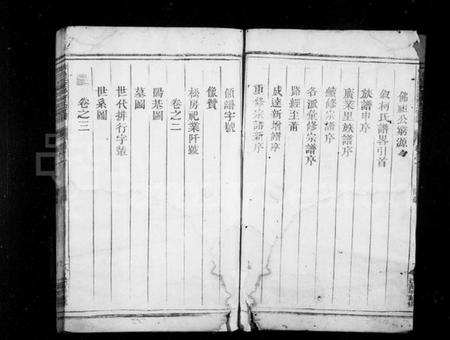 佛祖公窮源
叙柯氏譜畧引首
族譜申序
廣業里族譜序
續修宗譜序
各派彙修宗譜序
路經王莆
成達新增譜序
重修宗譜新序
領譜字號
像贊
松房祀業阡號
卷之二
陽基圖
墓圖
世代排行字輩
世系圖
卷之三